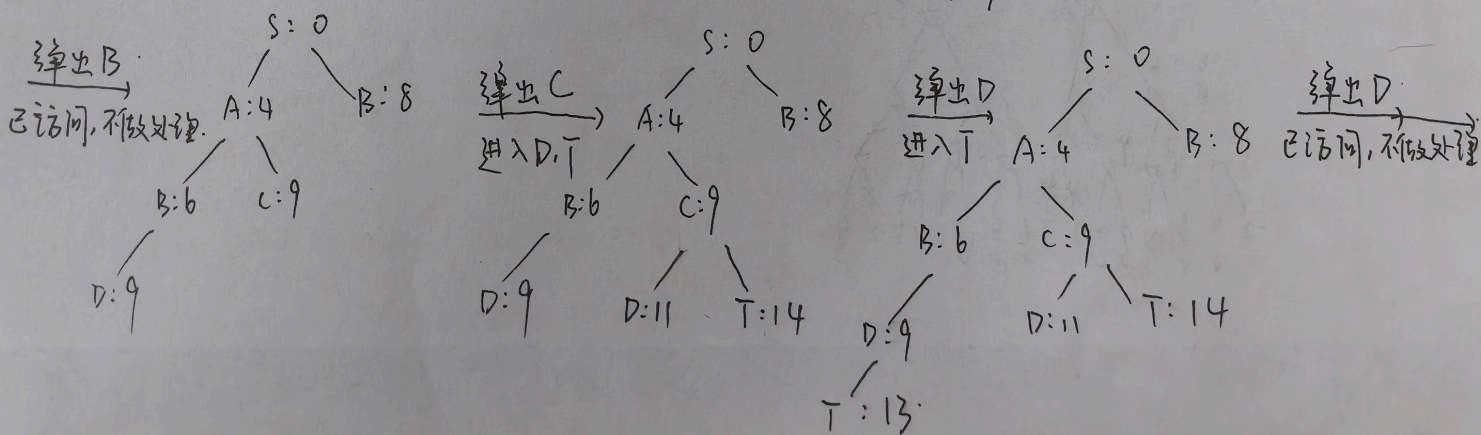 弹出B.
已访问,不做处理.
S: 0
A:4
B:8
B:6
C:9
D:9
弹出C
进入D,T
S: 0
A:4
B:8
B:6
C:9
D:9
D:11
T:14
弹出D
进入T
S: 0
A:4
B: 8
B:6
C:9
D:9
D:11
T:14
T:13.
弹出D.
已访问,不做处理